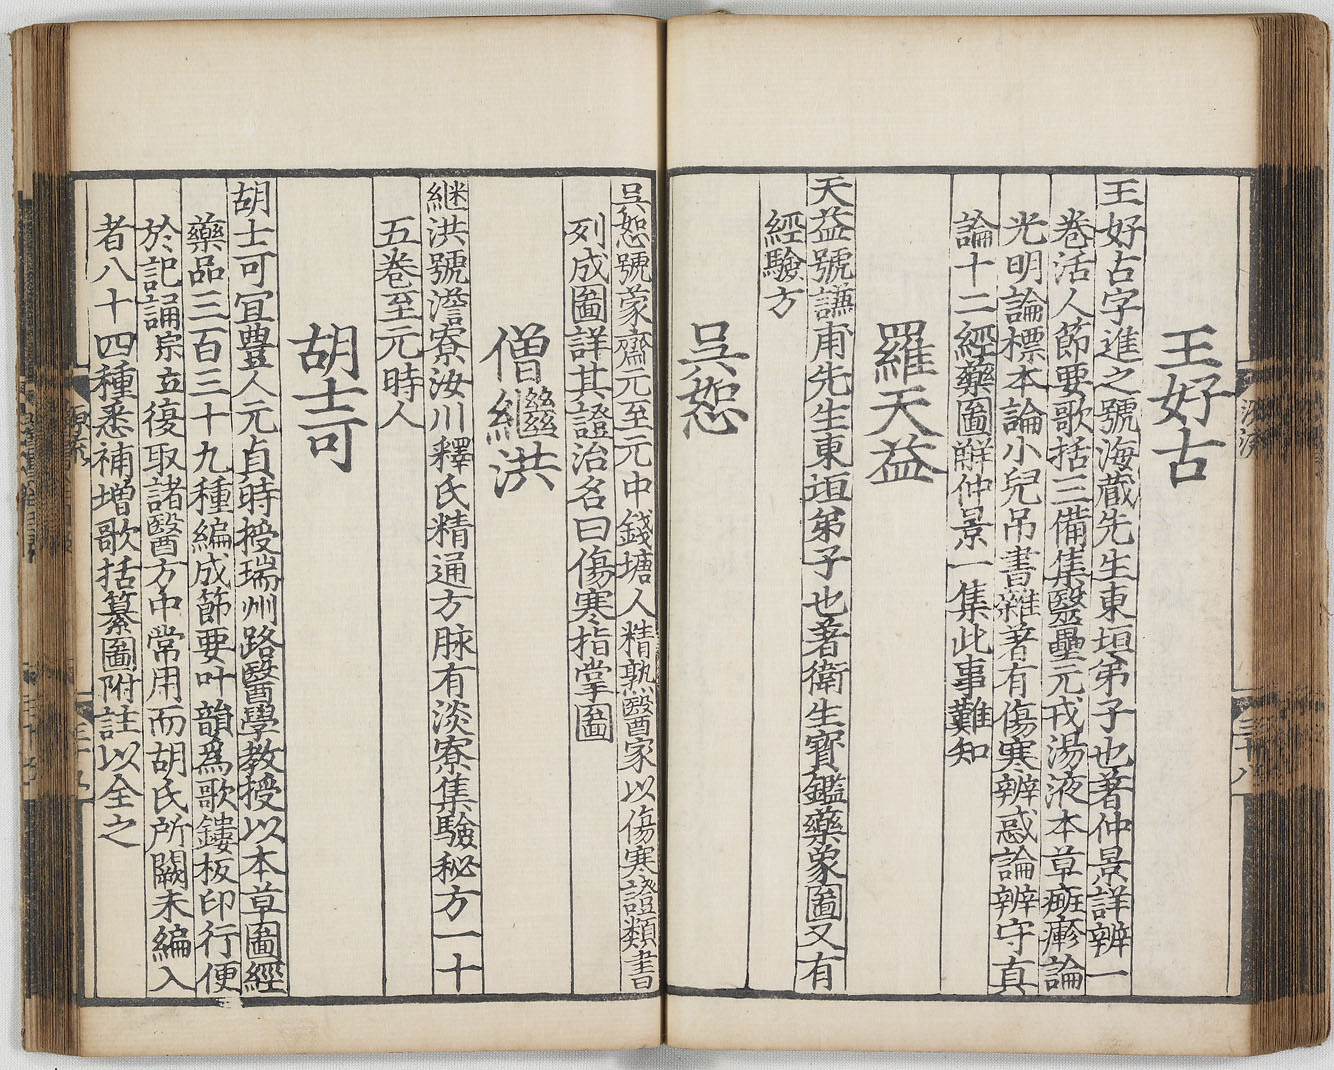 王好古
王好古字進之號海藏先生東垣弟子也著仲景詳辨一
卷活人節要歌括三備集醫壘元戎湯液本草癍癆論
光明論標本論小兒吊書雜著有傷寒辨惑論辨守真
論十二經藥圖解仲景一集此事難知
羅天益
天益號謙甫先生東垣弟子也著衛生寳鑑藥象圖又有
經驗方
吳恕
吳恕號蒙齋元至元中錢塘人精熟醫家以傷寒證類書
列成圖詳其證治名曰傷寒指掌圖
僧繼洪
継洪號澹寮汝川釋氏精通方脉有淡寮集驗秘方一十
五巻至元時人
胡士可
胡士可冝豊人元貞時授瑞州路醫學教授以本草圖經
藥品三百三十九種編成節要叶韻爲歌鏤板印行便
於記誦宗立復取諸醫方中常用而胡氏所闕未編入
者八十四種悉補增歌括纂圖附註以全之
源流
三十九